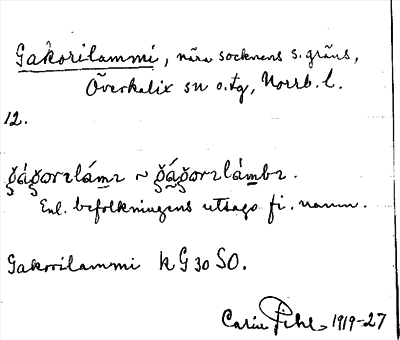 Gakorilammi, nära socknens s. gräns,
Överkalix sn o. tg, Norrb. l.
12.
Enl. befolkningens utsago fi. namn.
Gakorilammi k G 30 SO.
Carin Pihl 1919-27